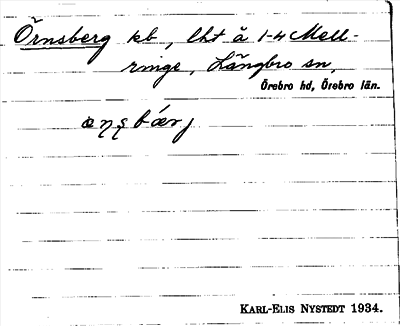 Örnsberg kb, lht å 1-4 Mell-
ringe, Längbro sn,
Örebro hd, Örebro län.
KARL-ELIS NYSTEDT 1934.